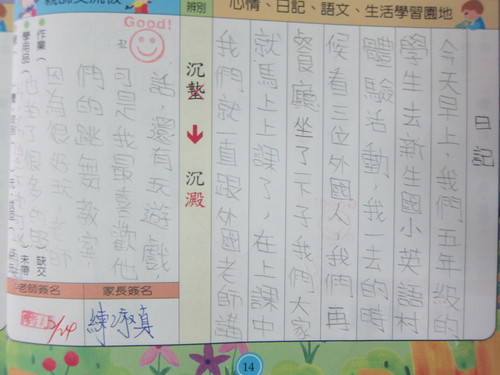 辨別
心情、日記、語文、生活學習園地
日記
今天早上，我們五年級的
學生去新生國小英語村
體驗活動，我一去的時
候看三位外國人，我們再
餐廳坐了一下子，我們大家
就馬上上課了，在上課中
我們就一直跟外國老師講
沉墊
沉澱
Good!
話，還有玩遊戲，
可是我最喜歡他
們的跳舞教室，
因為很好玩，
很多的
作業（
缺交
學用品（
未帶
老師簽名
家長簽名
5/24
14